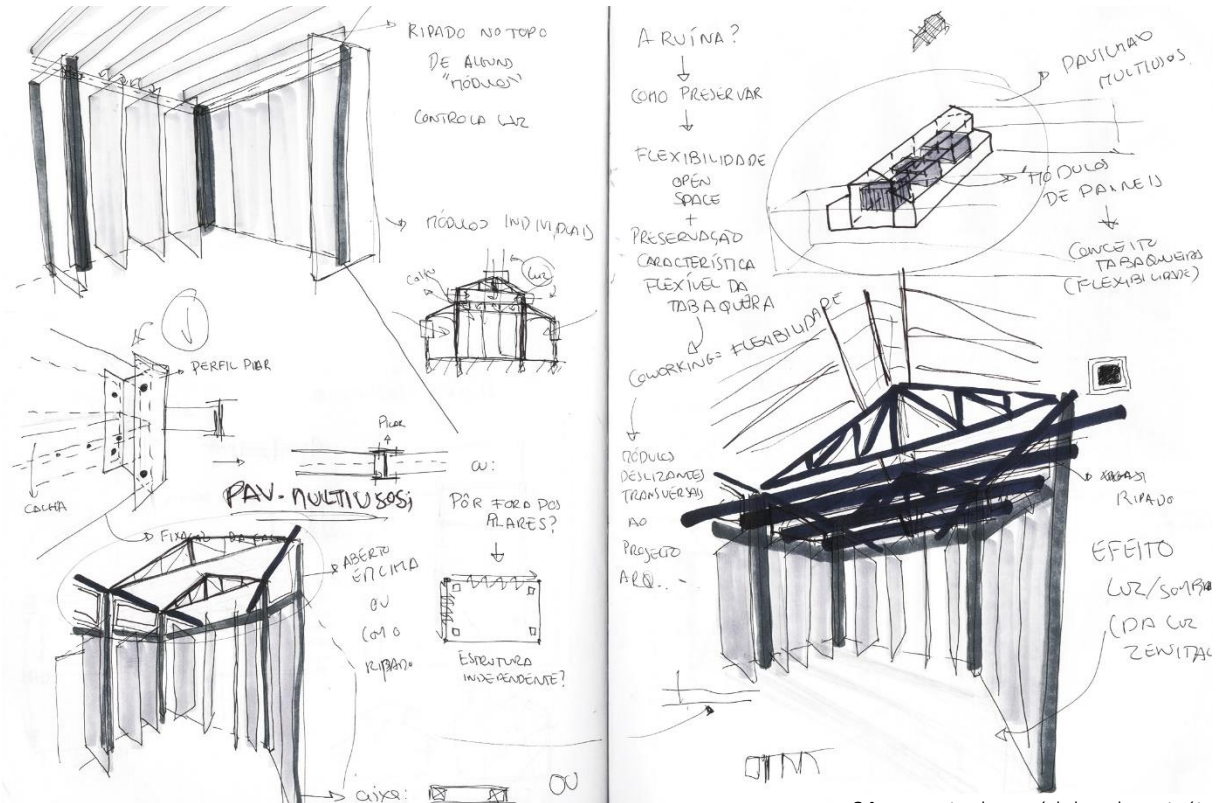 RIPADO NO TOPO
DE ALGUNS
"MÓDULOS"
CONTROLA LUZ
MÓDULOS INDIVIDUAIS
LUZ
PERFIL PILAR
CALHA
PILAR
OU:
PAV. MULTIUSOS;
PÔR FORA DOS
PILARES?
FIXAÇÃO DA
ABERTO
EM CIMA
OU
COM O
RIPADO
ESTRUTURA
INDEPENDENTE?
caixa:
OU
A RUÍNA?
COMO PRESERVAR
FLEXIBILIDADE
OPEN
SPACE
+
PRESERVAÇÃO
CARACTERÍSTICA
FLEXÍVEL DA
TABAQUEIRA
COWORKING = FLEXIBILIDADE
MÓDULOS
DESLIZANTES
TRANSVERSAIS
AO
PROJECTO
ARQ. . -
PAVILHÃO
MULTIUSOS.
MÓDULOS
DE PAINEIS
CONCEITO
TABAQUEIRA
(FLEXIBILIDADE)
RIPADO
EFEITO
LUZ/SOMBRA
(DA LUZ
ZENITAL